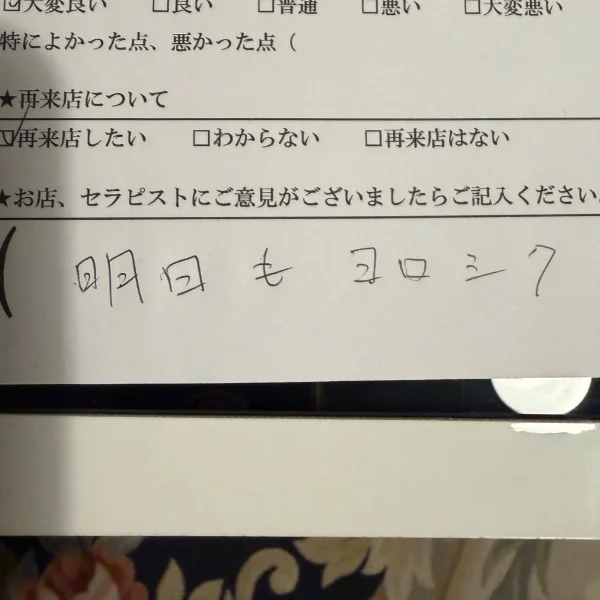 ☑大変良い □良い □普通 □悪い □大変悪い
特によかった点、悪かった点（
★再来店について
☑再来店したい □わからない □再来店はない
★お店、セラピストにご意見がございましたらご記入ください。
( 明日も ヨロシク